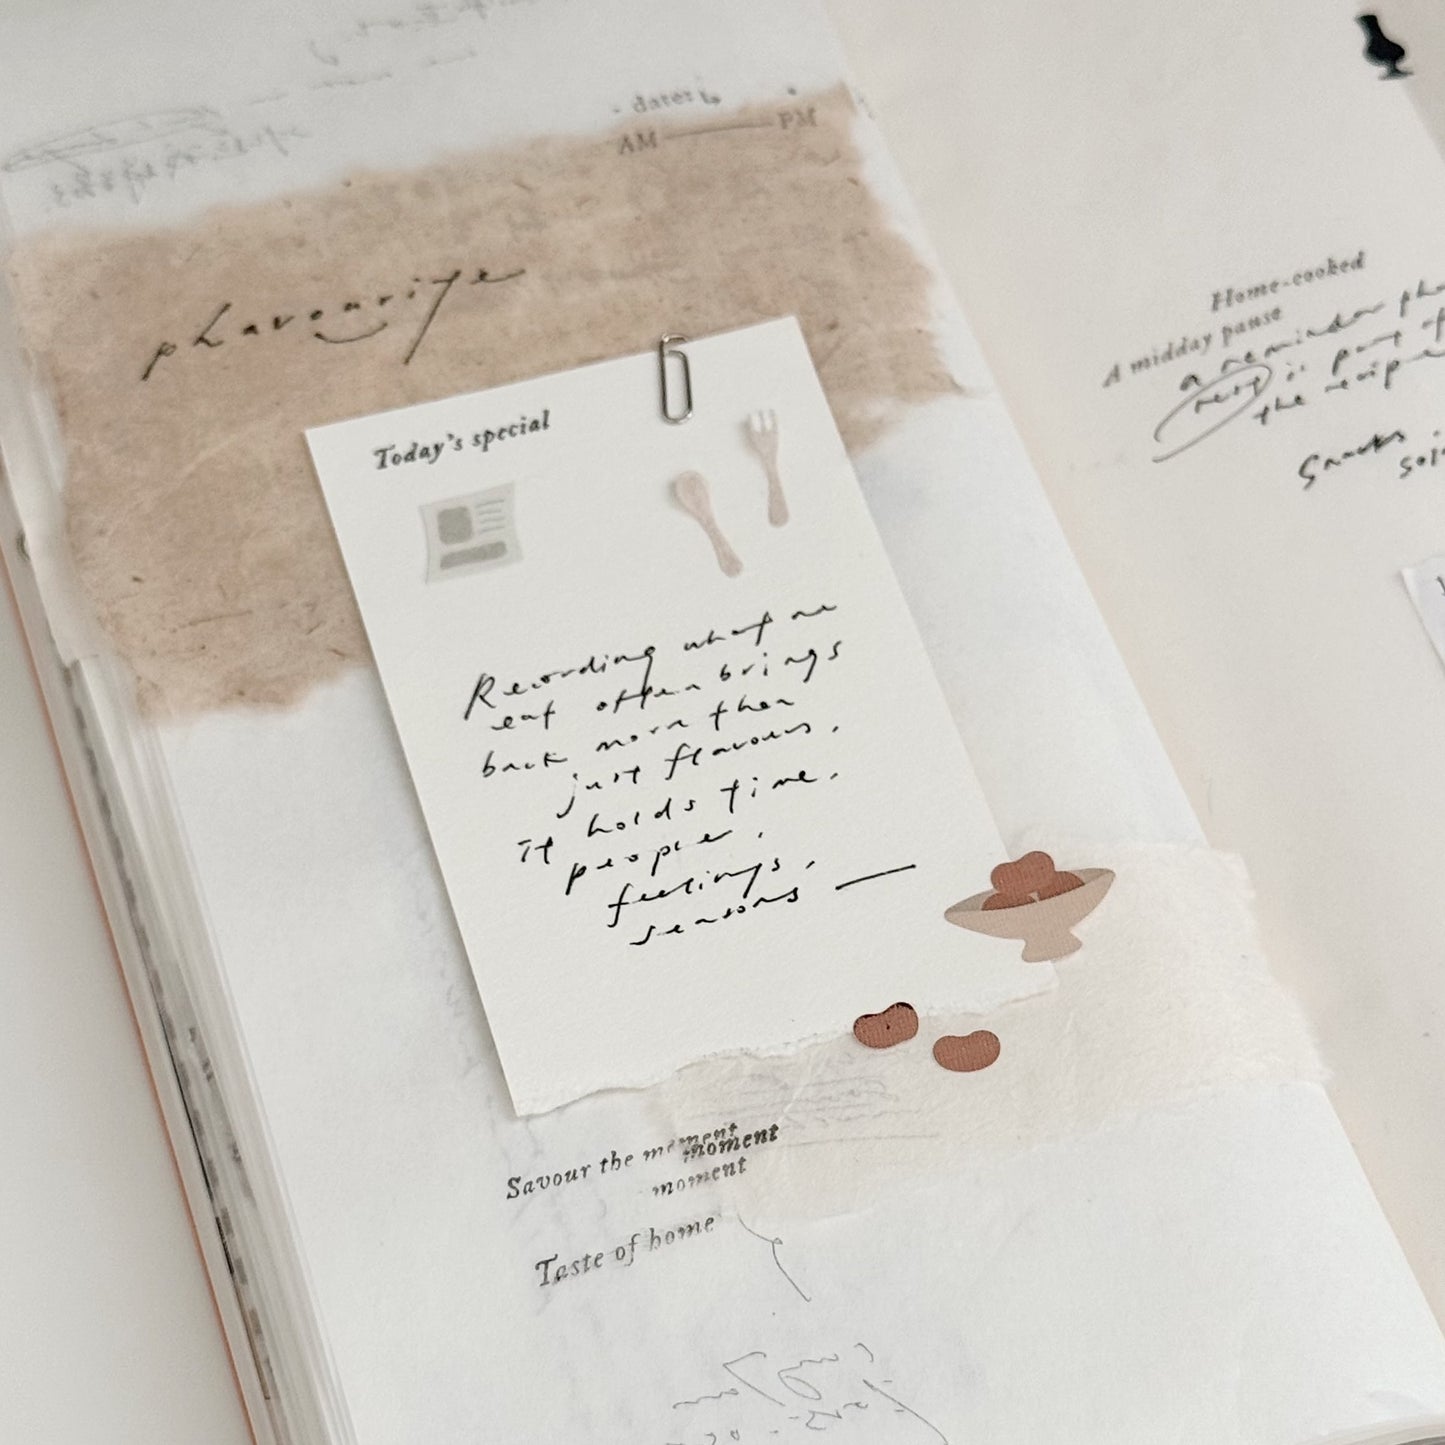 dates
AM PM
phavourite
Today's special
Recording what we
eat often brings
back more than
just flavours.
It holds time,
people,
feelings,
seasons —
Savour the moment
moment
moment
Taste of home
Home-cooked
A midday pause
a reminder
rest is part of
the recipe
Snacks